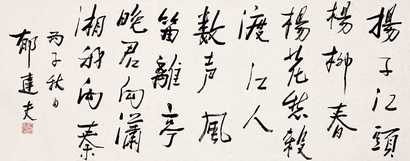 揚子江頭
楊柳春
楊花愁殺
渡江人
數声風
笛離亭
晚君向瀟
湘我向秦
丙子秋日
郁達夫